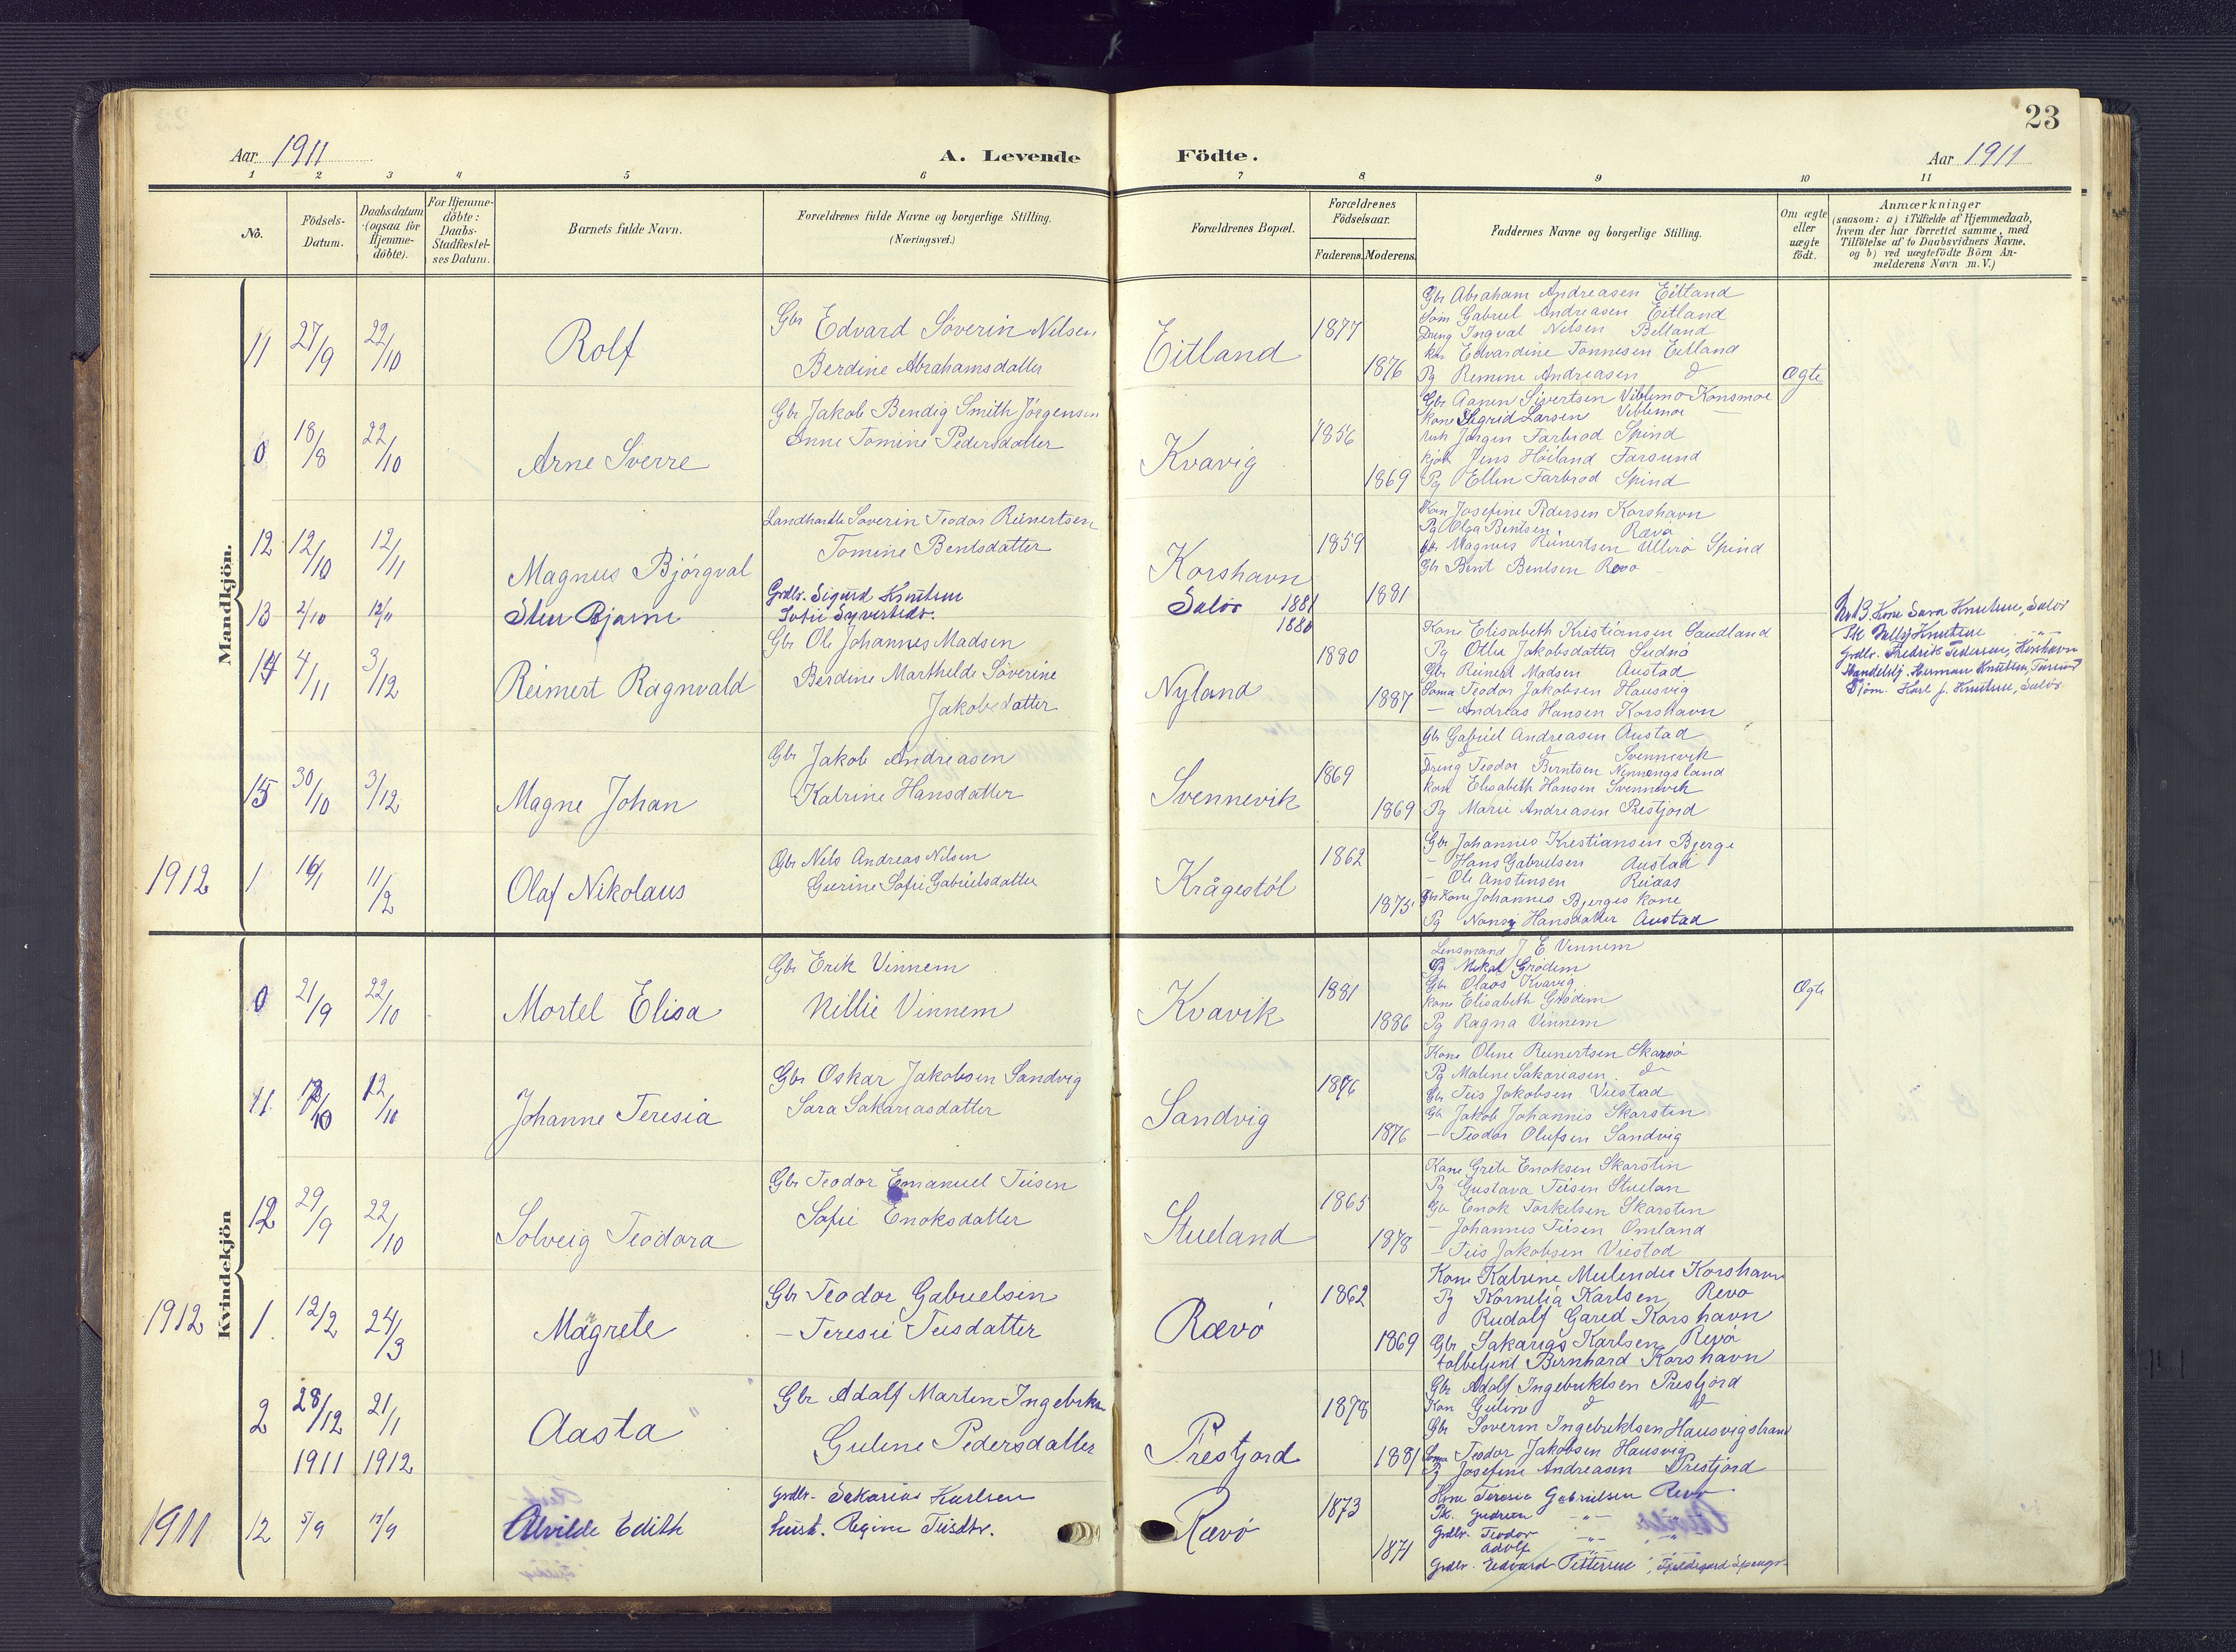 23
Aar 1911
A. Levende Födte.
Aar 1911
1 2 3 4 5 6 7 8 9 10 11
No.
Födsels-Datum.
Daabsdatum (ogsaa for Hjemme-döbte).
For Hjemme-döbte: Daabs-Stadfæstel-ses Datum.
Barnets fulde Navn.
Forældrenes fulde Navne og borgerlige Stilling.
(Næringsvei.)
Forældrenes Bopæl.
Forældrenes Födselsaar.
Faderens. Moderens.
Faddernes Navne og borgerlige Stilling.
Om ægte eller uægte födt.
Anmærkninger
(saasom: a) i Tilfælde af Hjemmedaab,
hvem der har forrettet samme, med
Tilföielse af to Daabsvidners Navne,
og b) ved uægtefödte Börn An-
melderens Navn m. V.)
Mandkjön.
11 27/9 22/10 Rolf
Gbr Edvard Söverin Nilsen
Berdine Abrahamsdatter
Eitland 1877 1876
Gbr Abraham Andreasen Eitland
Söm Gabriel Andreasen Eitland
Dreng Ingval Nilsen Belland
kon Edvardine Tönnesen Eitland
Pg Remine Andreasen d
Ægte
0 18/8 22/10 Arne Sverre
Gbr Jakob Bendig Smith Jörgensen
Anne Tomine Pedersdatter
Kvavig 1856 1869
Gbr Aanen Sivertsen Viblemo Konsmoe
kone Sigrid Larsen Viblemoe
Jörgen Farbrod Spind
kjöb Jens Höiland Farsund
Pg Ellen Farbrod Spind
12 12/10 12/11 Magnus Bjórgval
Landhandle Söverin Teodor Reinertsen
Tomine Bentsdatter
Korshavn 1859 1881
Kon Josefine Pedersen Korshavn
Pg Olga Bentsen Rævö
Gbr Magnus Reinertsen Ullerö Spind
Gbr Bent Bentsen Revö
13 2/10 12/11 Sten Bjarne
Grdbr. Sigurd Knutsen
Sofie Syvertsdtr.
Salör 1881
1880
No 13 Kone Sara Knutsen, Salör
Pk Nelly Knutsen -"-
Grdbr. Fredrik Pedersen, Korshavn
Handelsbj. Herman Knutsen, Farsund
Sjöm. Karl J. Knutsen, Salör
14 4/11 3/12 Reimert Ragnvald
Gbr Ole Johannes Madsen
Berdine Marthilde Söverine
Jakobsdatter
Nyland 1880 1887
Kone Elisabeth Kristiansen Sandland
Pg Otlie Jakobsdatter
Gbr Reinert Madsen Austad
Söma Teodor Jakobsen Hausvig
— Andreas Hansen Korshavn
15 30/10 3/12 Magne Johan
Gbr Jakob Andreasen
Katrine Hansdatter
Svennevik 1869 1869
Gbr Gabriel Andreasen Austad
d Svennevik
Dreng Teodor Berntsen
kone Elisabeth Hansen Svennevik
Pg Marie Andreasen Prestjord
1912 1 16/1 11/2 Olaf Nikolaus
Gbr Nels Andreas Nilsen
Gurine Sofie Gabrielsdatter
Krågestöl 1862 1875
Gbr Johannes Kristiansen Bjerge
— Hans Gabrielsen Austad
— Ole Anstensen
Gbr Kone Johannes Bjerges kone
Pg Nansy Hansdatter Austad
Kvindekjön
0 21/9 22/10 Mortel Elisa
Gbr Erik Vinnem
Nillie Vinnem
Kvavik 1881 1886
Lensmand J E Vinnem
Pg Mikal Grödem
Gbr Olaus Kvavig
kone Elisabeth Grödem
Pg Ragna Vinnem
Ægte
11 12/10 Johanne Teresia
Gbr Oskar Jakobsen Sandvig
Sara Sakariasdatter
Sandvig 1876 1876
Kone Oline Reinertsen Skarvö
Pg Maline Sakariasen d
Gbr Teis Jakobsen Viestad
Gbr Jakob Johannis Skarsten
— Teodor Olufsen Sandvig
12 29/9 22/10 Solveig Teodora
Gbr Teodor Emanuel Teisen
Sofie Enoksdatter
Stueland 1865 1878
Kone Grete Enoksen Skarsten
Pg Gustava Teisen Stuelan
Gbr Enok Torkelsen Skarsten
— Johannes Teisen Omland
— Teis Jakobsen Viestad
1912 1. 12/2 24/3 Magrete
Gbr Teodor Gabrielsen
— Teresie Teisdatter
Rævö 1862 1869
Kone Katrine Meilender Korshavn
Pg Kornelia Karlsen Revö
Rudolf Gared Korshavn
Gbr Sakarias Karlsen Revö
tolbetjent Bernhard Korshavn
2 28/12 1911 21/1 1912 Aasta
Gbr Adolf Marten Ingebriks
Guline Pedersdatter
Prestjord 1878 1881
Gbr Adolf Ingebriktsen Prestjord
Kon Guline d d
Gbr Soverin Ingebriktsen Hausvigstrand
Söma Teodor Jakobsen Hausvig
Pg Josefine Andreasen Prestjord
1911 12 5/9 17/9 Alvilde Edith
Grdbr. Sakarias Karlsen
hust. Regine Teisdtr.
Rævö 1873 1871
Kone Teresie Gabrielsen Revö
Pk. Gudrun -"-
Grdbr. Teodor -"-
Adolf -"-
Grdbr. Edvard Pettersen